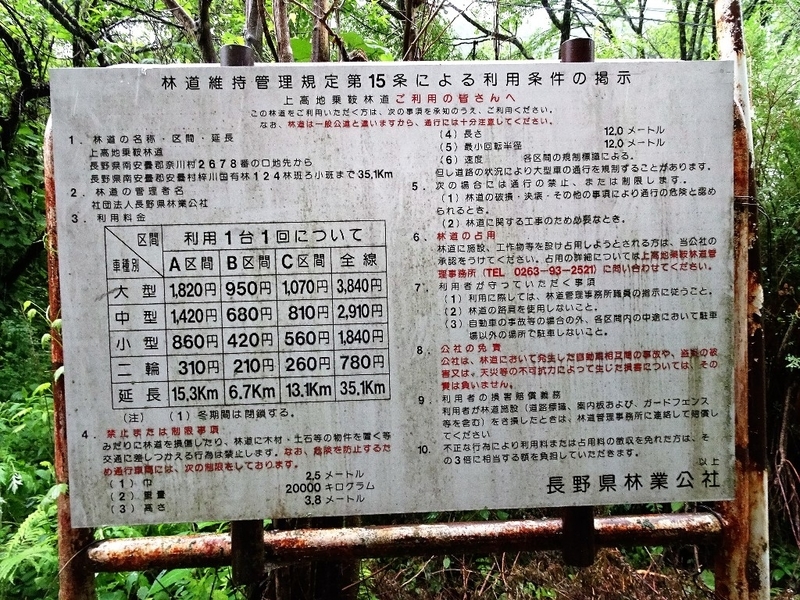 林道維持管理規定第15条による利用条件の掲示
上高地乗鞍林道ご利用の皆さんへ
この林道をご利用いただく方は、次の事項を承知のうえ、ご利用ください。
なお、林道は一般公道と違いますから、通行には十分注意してください。
1. 林道の名称・区間・延長
上高地乗鞍林道
長野県南安曇郡奈川村2678番の口地先から
長野県南安曇郡安曇村梓川国有林124林班ろ小班まで35,1Km
2. 林道の管理者名
社団法人長野県林業公社
3. 利用料金
区間 利用1台1回について
車種別 A区間 B区間 C区間 全線
大型 1,820円 950円 1,070円 3,840円
中型 1,420円 680円 810円 2,910円
小型 860円 420円 560円 1,840円
二輪 310円 210円 260円 780円
延長 15,3Km 6.7Km 13.1Km 35.1Km
(注) (1) 冬期間は閉鎖する。
4. 禁止または制限事項
みだりに林道を損傷したり、林道に木材・土石等の物件を置く等
交通に差しつかえる行為は禁止します。なお、危険を防止するた
め通行車両には、次の制限をしております。
(1) 巾 2,5 メートル
(2) 重量 20000 キログラム
(3) 高さ 3,8 メートル
(4) 長さ 12,0 メートル
(5) 最小回転半径 12,0 メートル
(6) 速度 各区間の規制標識による。
但し道路の状況により大型車の通行を規制することがあります。
5. 次の場合には通行の禁止、または制限します。
(1) 林道の破損・決壊・その他の事項により通行の危険と認め
られるとき。
(2) 林道に関する工事のため必要なとき。
6. 林道の占用
林道に施設、工作物等を設け占用しようとされる方は、当公社の
承認をうけてください。占用の詳細については上高地乗鞍林道管
理事務所(TEL 0263-93-2521)に問い合わせてください。
7. 利用者が守っていただく事項
(1) 利用に際しては、林道管理事務所職員の指示に従うこと。
(2) 林道の路肩を使用しないこと。
(3) 自動車の事故等の場合の外、各区間内の中途において駐車
場以外の場所で駐車しないこと。
8. 公社の免責
公社は、林道において発生した自動車相互間の事故や、盗難の被
害又は、天災等の不可抗力によって生じた損害については、その
責は負いません。
9. 利用者の損害賠償義務
利用者が林道施設(道路標識、案内板および、ガードフェンス
等を含む)をき損したときは、林道管理事務所に連絡して賠償し
てください
10. 不正な行為により利用料または占用料の徴収を免れた方は、そ
の3倍に相当する額を負担していただきます。
以上
長野県林業公社